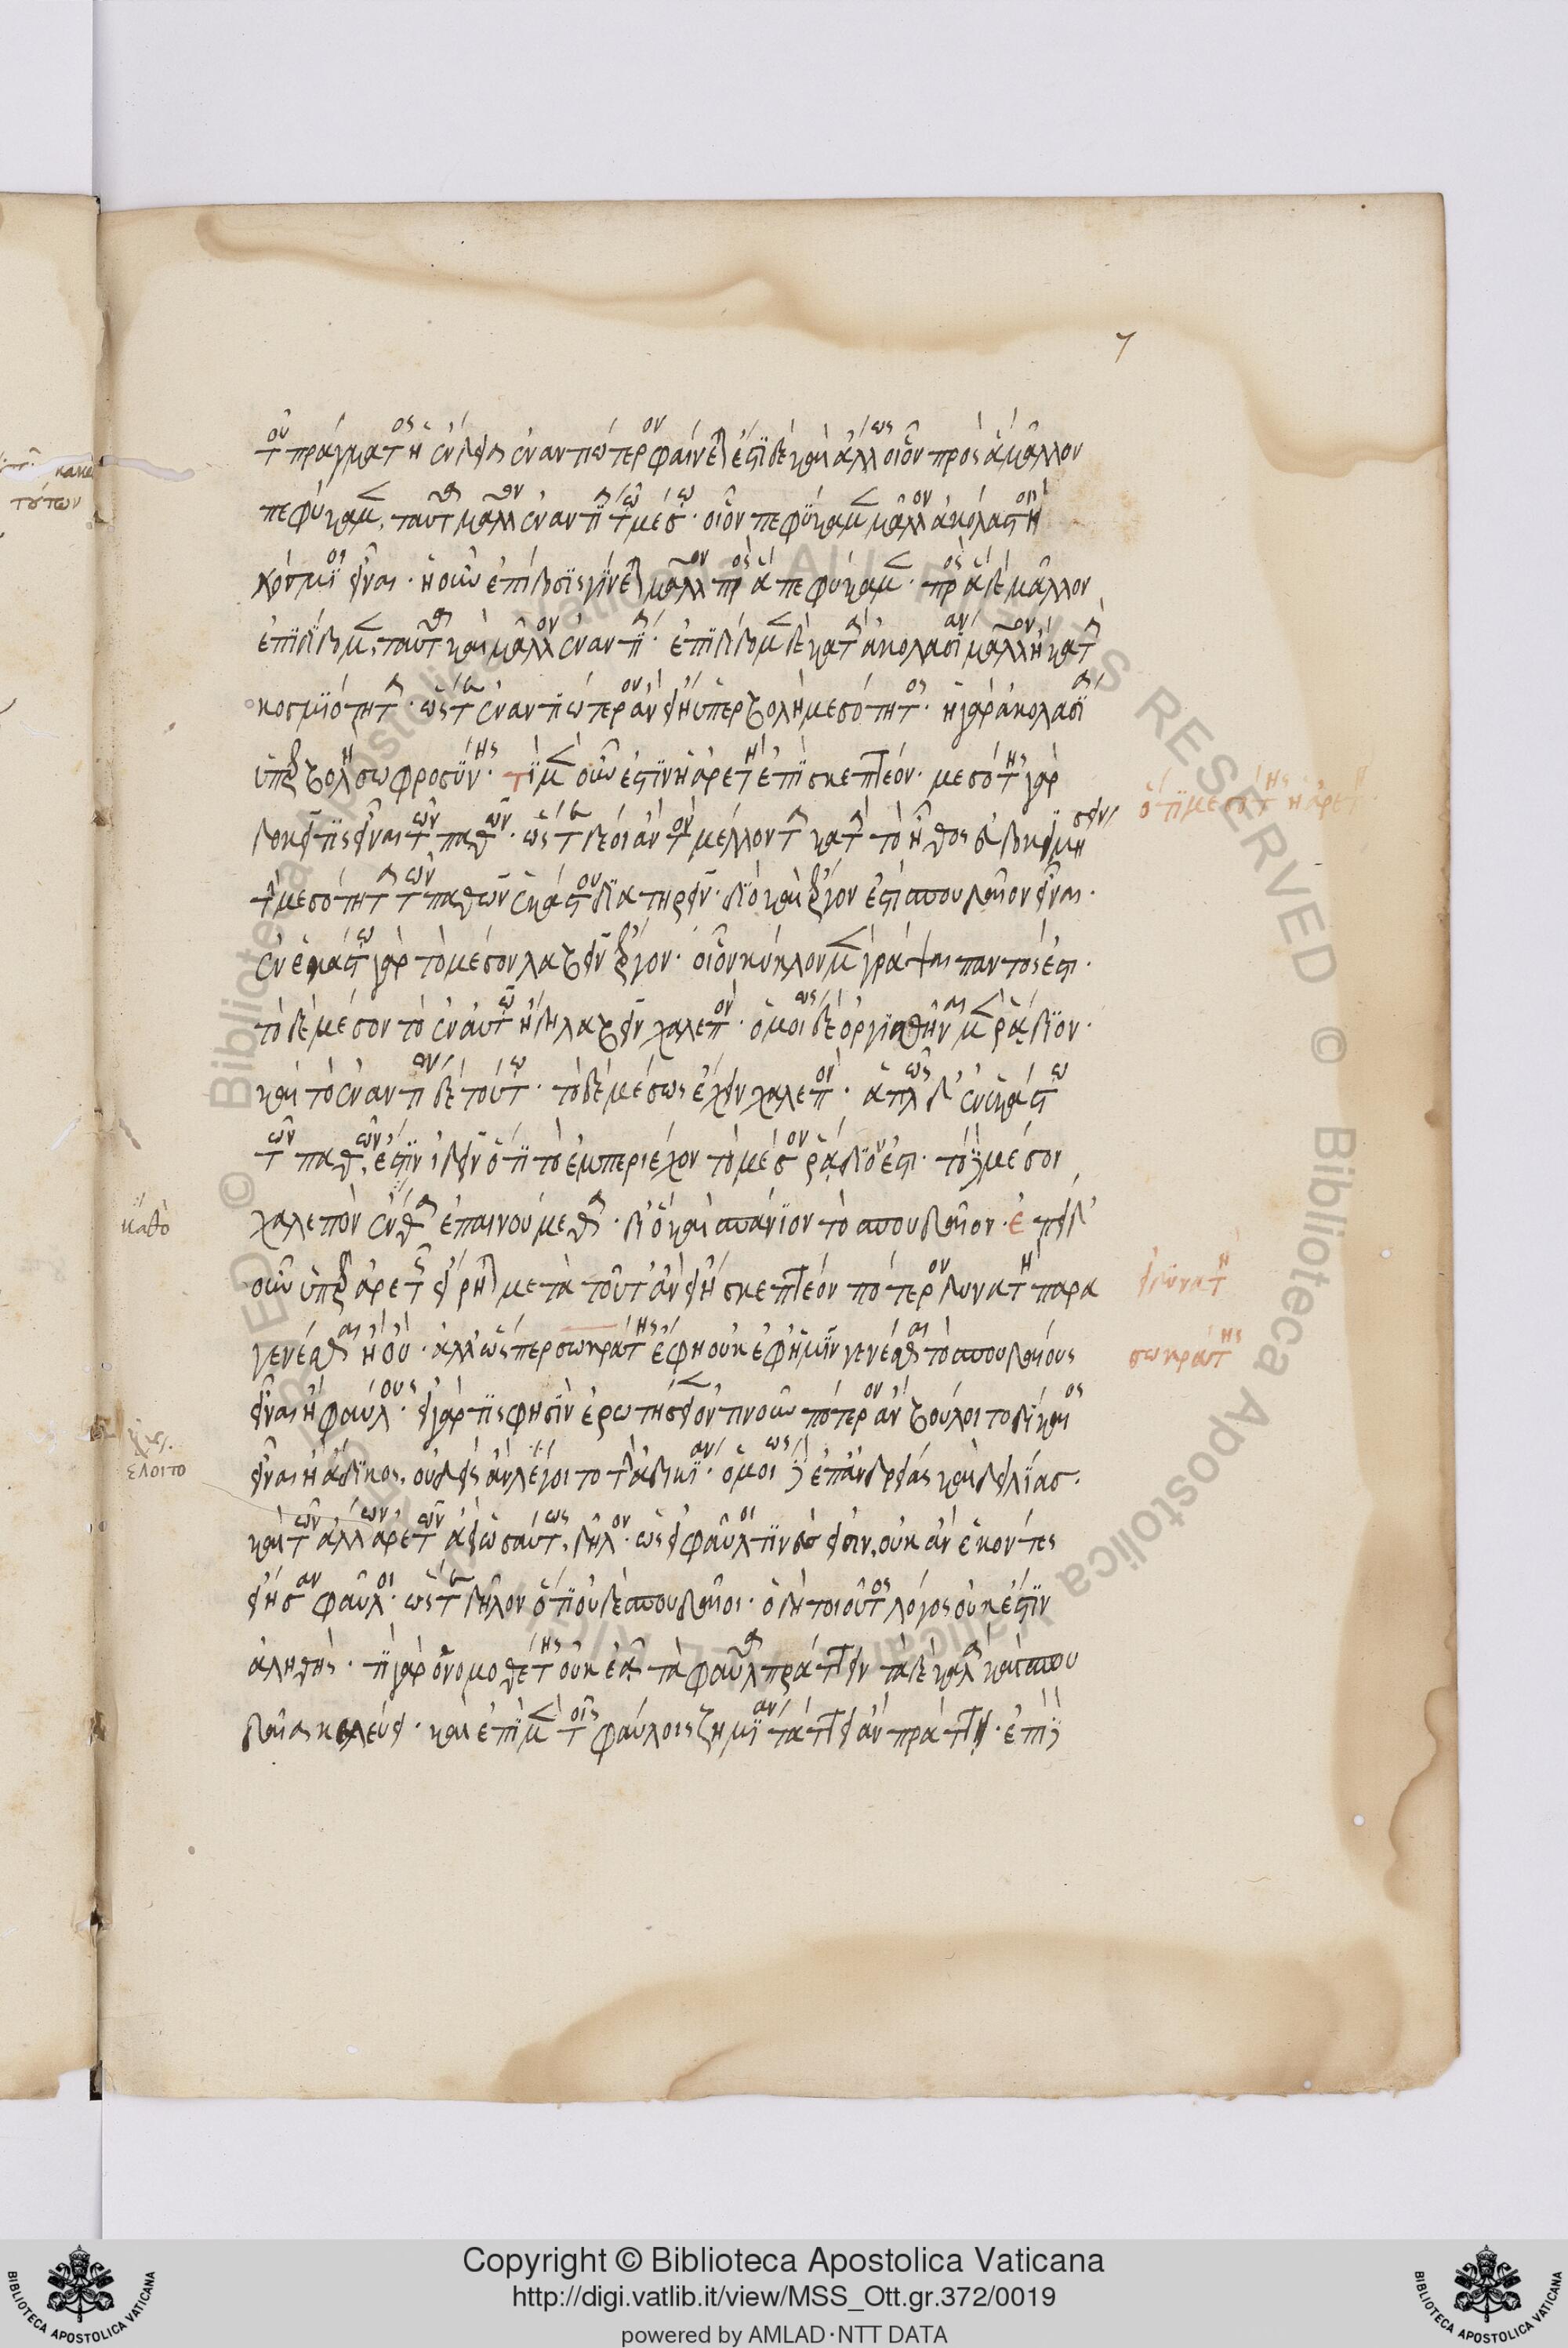 7
τοῦ πράγματος ἡ ἔνδεια ἐναντιώτερον φαίνεται ἔστι δὲ καὶ ἄλλως οἷον πρὸς ἃ μᾶλλον
πεφύκαμεν, ταῦτα μᾶλλον ἐναντία τῷ μέσω· οἷον πεφύκαμεν μᾶλλον ἀκόλαστοι ἢ
κόσμιοι εἶναι· ἡ οὖν ἐπίδοσις γίνεται μᾶλλον πρὸς ἃ πεφύκαμεν· πρὸς ἃ δὲ μᾶλλον
ἐπιδίδομεν, ταῦτα καὶ μᾶλλον ἐναντία· ἐπιδίδομεν δὲ κατὰ ἀκολασίαν μᾶλλον ἢ κατὰ
κοσμιότητα· ὥστε ἐναντιώτερον ἂν εἴη ὑπερβολὴ μεσότητος· ἡ γὰρ ἀκολασία
ὑπερβολὴ σωφροσύνης· τί μὲν οὖν ἐστιν ἡ ἀρετὴ ἐπίσκεπτέον· μεσότης γὰρ
δοκεῖ τις εἶναι τῶν παθῶν· ὥστε δέοι ἂν τὸν μέλλοντα κατὰ τὸ ἦθος εὐδοκιμήσειν
τὴν μεσότητα τῶν παθῶν ἑκάστου διατηρεῖν· διὸ καὶ ἔργον ἐστὶ σπουδαῖον εἶναι·
ἐν ἑκάστω γὰρ τὸ μέσον λαβεῖν ἔργον· οἷον κύκλον μὲν γράψαι παντός ἐστι·
τὸ δὲ μέσον τὸ ἐν αὐτῶ ἤδη λαβεῖν χαλεπόν· ὁμοίως δὲ ὀργισθῆναι μὲν ῥᾴδιον·
καὶ τὸ ἐναντίον δὲ τούτω· τὸ δὲ μέσως ἔχειν χαλεπόν· ἁπλῶς δ' ἐν ἑκάστω
τῶν παθῶν, ἔστιν ἰδεῖν ὅτι τὸ ἐμπεριέχον τὸ μέσον ῥᾴδιόν ἐστι· τὸ δὲ μέσον
χαλεπὸν ἔνθα ἐπαινούμεθα· διὸ καὶ σπάνιον τὸ σπουδαῖον· ἐπεὶ δ'
οὖν ὑπὲρ ἀρετῆς εἴρηται μετὰ τοῦτ' ἂν εἴη σκεπτέον πότερον δυνατὴ παρα
γενέσθαι ἢ οὔ· ἀλλ' ὥσπερ σωκράτης ἔφη οὐκ ἐφ' ἡμῖν γενέσθαι τὸ σπουδαίους
εἶναι ἢ φαύλους· εἰ γάρ τις φησὶν ἐρωτήσειεν ὁντιναοῦν πότερον ἂν βούλοιτο δίκαιος
εἶναι ἢ ἄδικος, οὐδεὶς ἂν λέγοιτο τὴν ἀδικίαν· ὁμοίως δὲ ἐπ' ἀνδρείας καὶ δειλίας·
καὶ τῶν ἄλλων ἀρετῶν ἀεὶ ὡσαύτως, δῆλον· ὡς εἰ φαῦλοί τινές εἰσιν, οὐκ ἂν ἑκόντες
εἴησαν φαῦλοι· ὥστε δῆλον ὅτι οὐδὲ σπουδαῖοι· ὁ δὴ τοιοῦτος λόγος οὐκ ἔστιν
ἀληθής· τί γὰρ ὁ νομοθέτης οὐκ ἐᾷ τὰ φαῦλα πράττειν τὰ δὲ καλὰ καὶ σπου
δαῖα κελεύει· καὶ ἐπὶ μὲν τοῖς φαύλοις ζημίαν τάττει ἂν πράττῃ· ἐπὶ δὲ
ὅτι μεσότης ἡ ἀρετή
εἰ δυνατὴ
σωκράτης
καθὸ
ἕλοιτο
τούτων
Copyright © Biblioteca Apostolica Vaticana
http://digi.vatlib.it/view/MSS_Ott.gr.372/0019
powered by AMLAD·NTT DATA